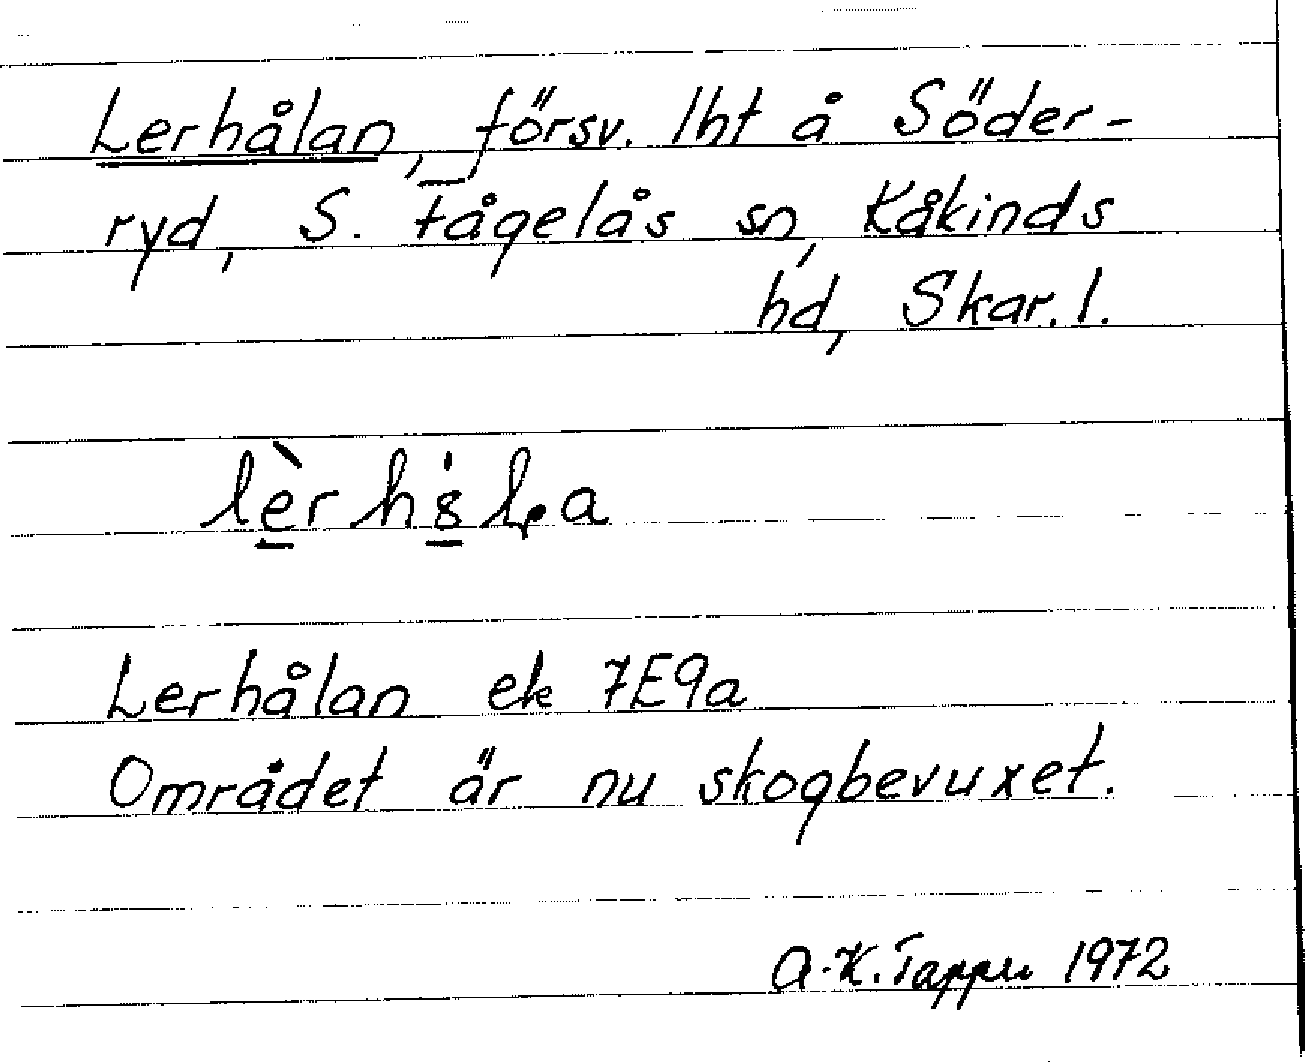 Lerhålan, försv. lht å Söder-
ryd, S. Fågelås sn, Kåkinds
hd, Skar. l.
Lerhålan ek 7E9a
Området är nu skogbevuxet.
A.-K. 1972